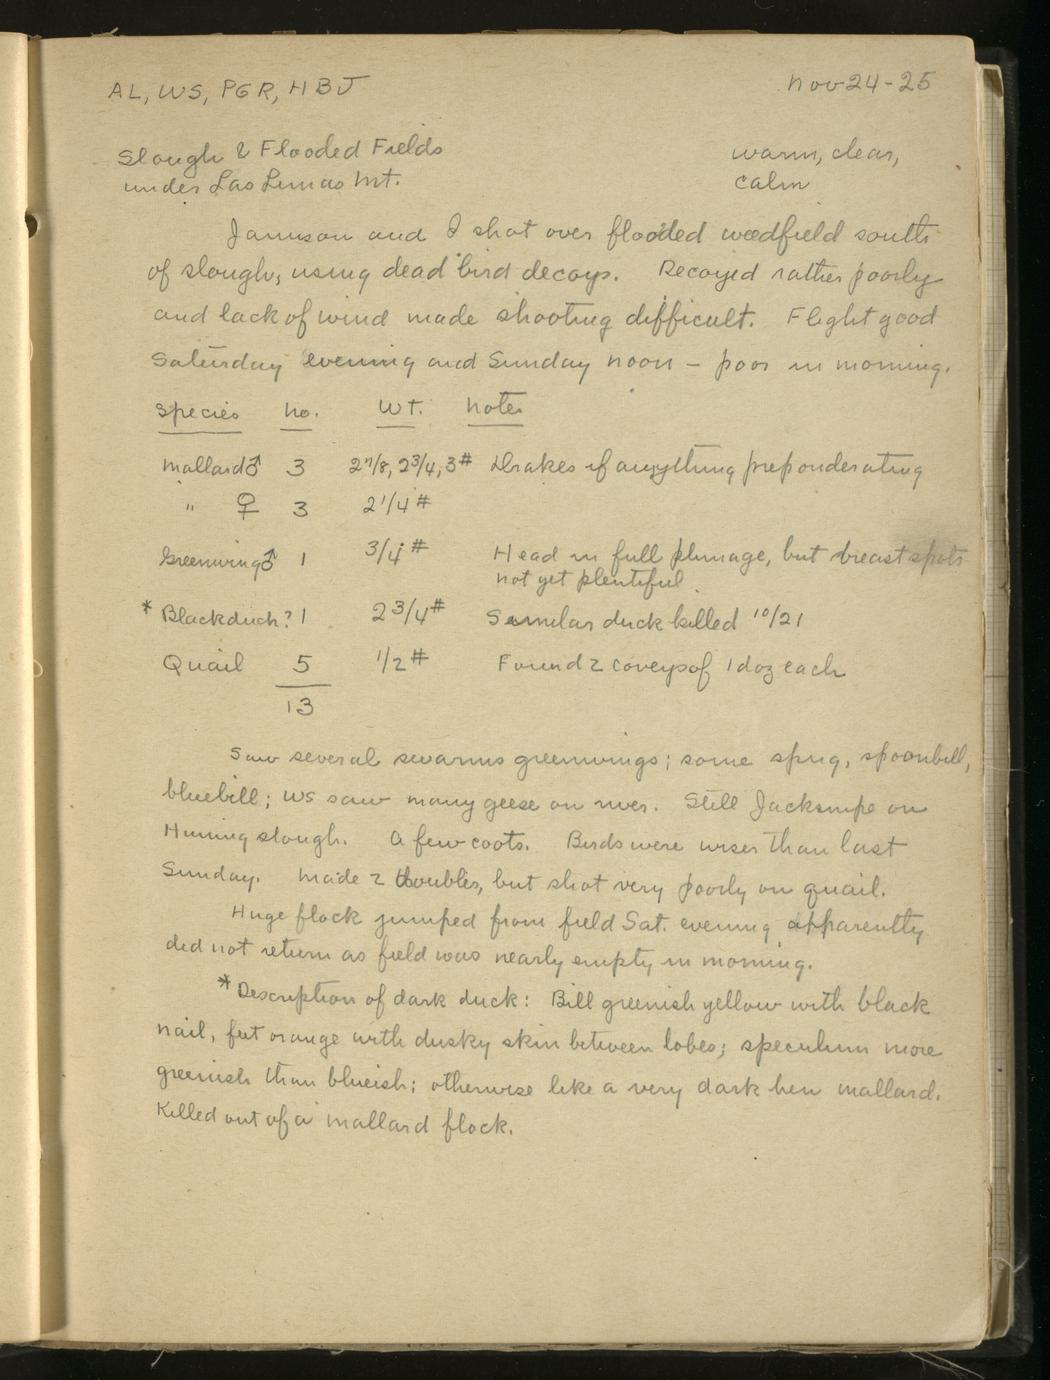 AL, WS, PGR, HBJ
Nov 24-25
Slough & Flooded Fields
warm, clear,
under Las Lunas Mt.
calm
Jamison and I shot over flooded weedfield south
of slough, using dead bird decoys. Decoyed rather poorly
and lack of wind made shooting difficult. Flight good
Saturday evening and Sunday noon - poor in morning.
Species No. Wt. Notes
Mallard ♂ 3 2 7/8, 2 3/4, 3# Drakes if anything preponderating
" ♀ 3 2 1/4#
Greenwing ♂ 1 3/4# Head in full plumage, but breast spots
not yet plentiful
* Blackduck? 1 2 3/4# Similar duck killed 10/21
Quail 5 1/2# Found 2 coveys of 1 doz each
13
Saw several swarms greenwings; some sprig, spoonbill,
bluebill; WS saw many geese on river. Still Jacksnipe on
Huning slough. A few coots. Birds were wiser than last
Sunday. Made 2 doubles, but shot very poorly on quail.
Huge flock jumped from field Sat. evening apparently
did not return as field was nearly empty in morning.
* Description of dark duck: Bill greenish yellow with black
nail, feet orange with dusky skin between lobes; speculum more
greenish than blueish; otherwise like a very dark hen mallard.
Killed out of a mallard flock.